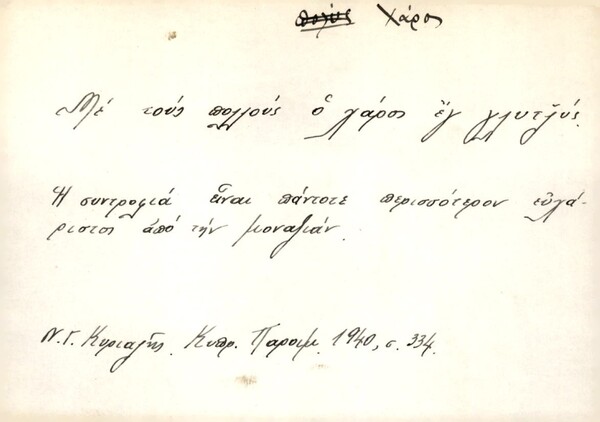 πολύς Χάρος
Μέ τούς πολλούς ὁ χάρος ἔν γλυτζ̆ύς.
Ἡ συντροφιά εἶναι πάντοτε περισσότερον εὐχά-
ριστος ἀπό τήν μοναξιάν.
Ν. Γ. Κυριαζῆς. Κυπρ. Παροιμ. 1940, σ. 334.